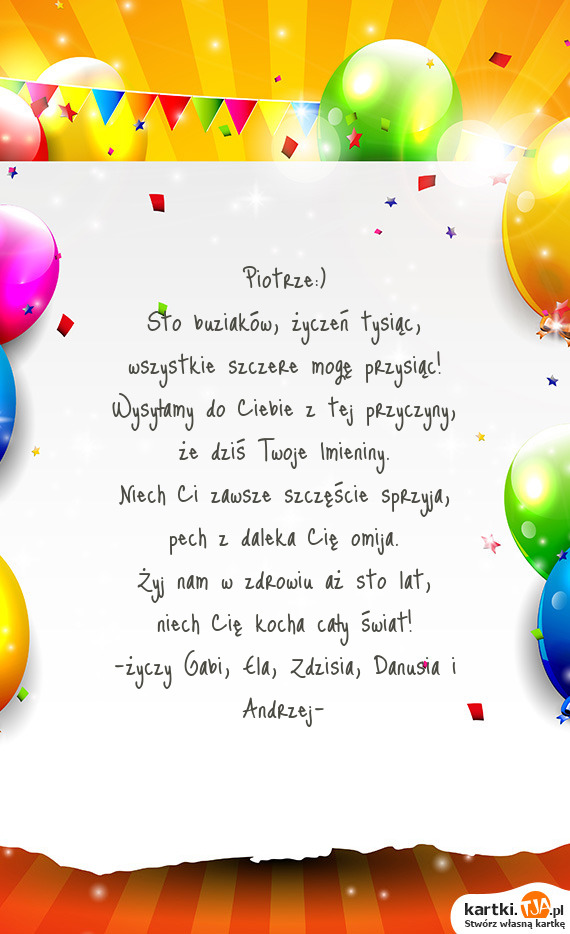 Piotrze:)
Sto buziaków, życzeń tysiąc,
wszystkie szczere mogę przysiąc!
Wysyłamy do Ciebie z tej przyczyny,
że dziś Twoje Imieniny.
Niech Ci zawsze szczęście sprzyja,
pech z daleka Cię omija.
Żyj nam w zdrowiu aż sto lat,
niech Cię kocha cały świat!
-życzy Gabi, Ela, Zdzisia, Danusia i
Andrzej-
kartki.TJA.pl
Stwórz własną kartkę